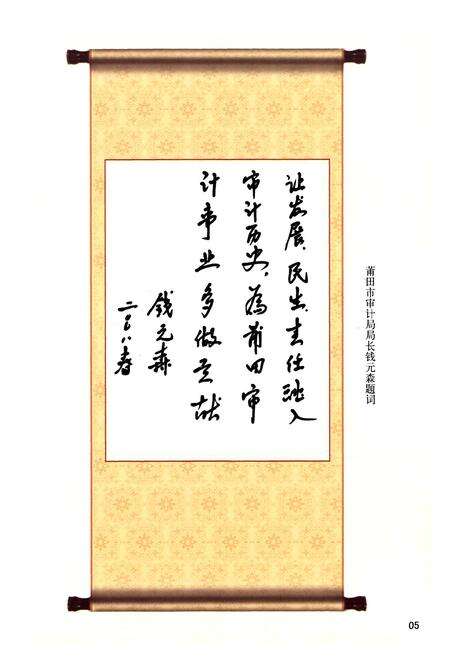 让发展、民生、责任融入
审计历史，为莆田审
计事业多做贡献
钱元森
二〇一八春
莆田市审计局局长钱元森题词
05